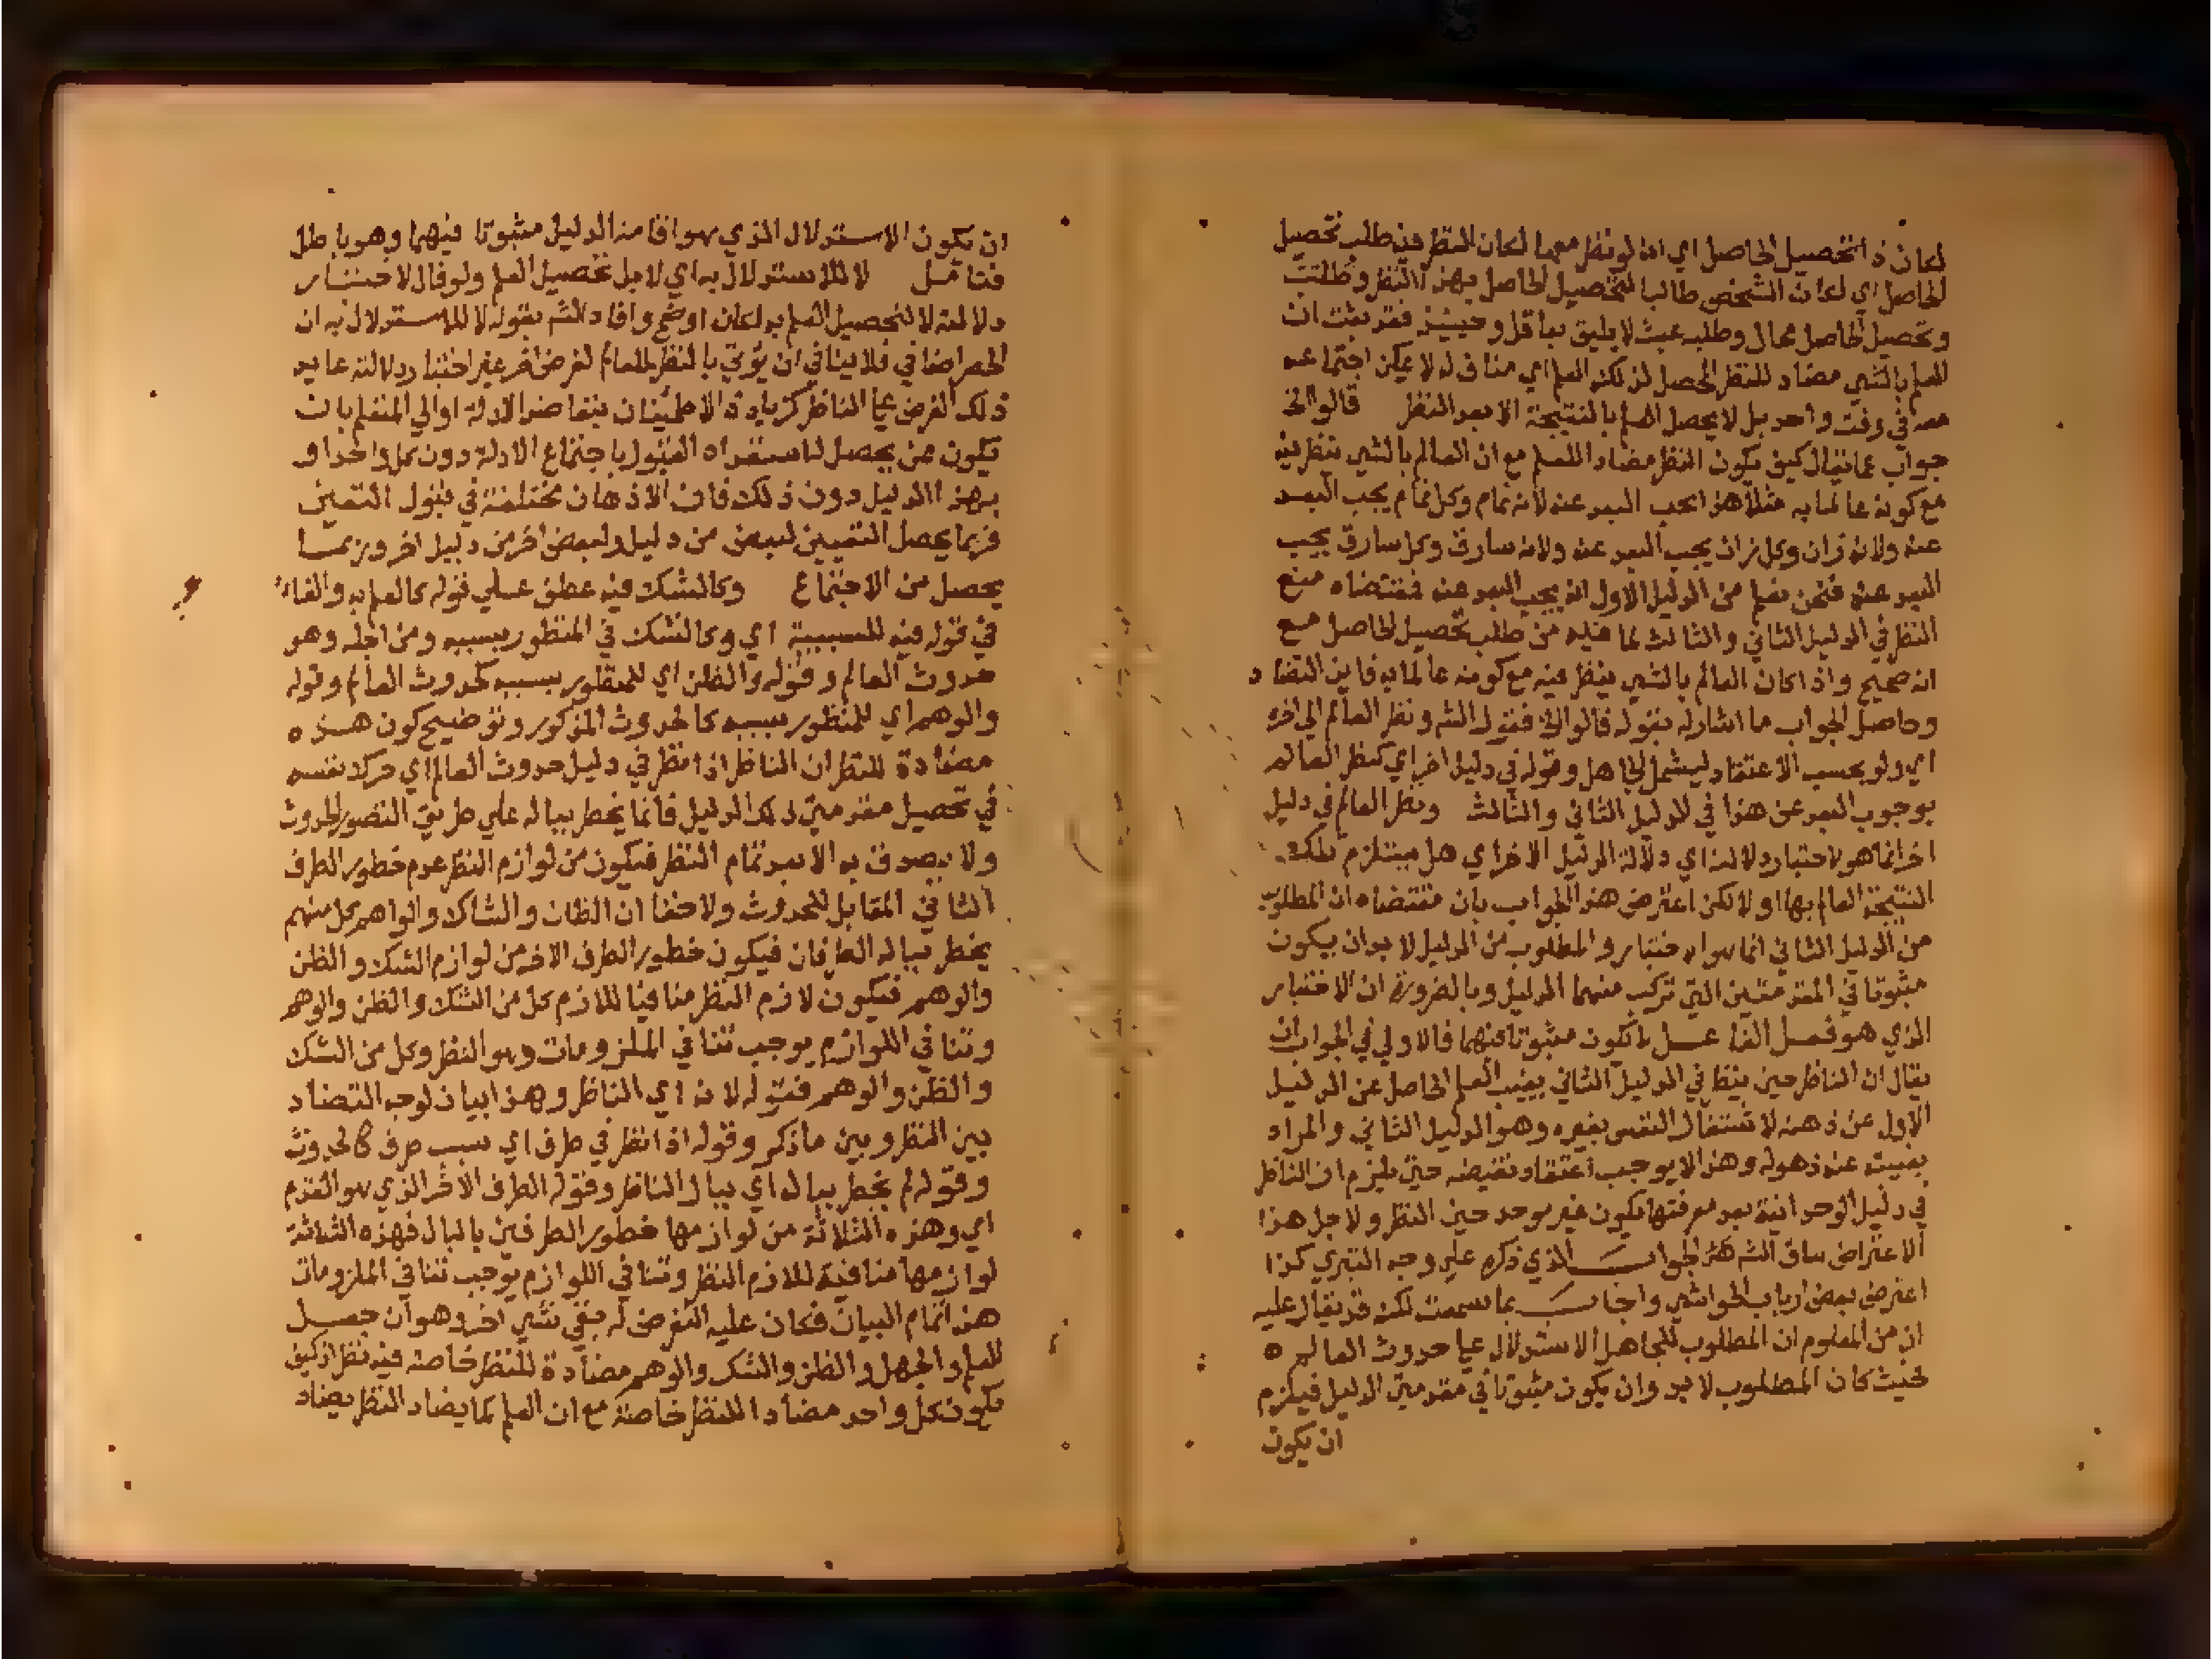 لكان ذا تحصيل الحاصل اي انه لو نظر معها لكان النظر فيه طلب تحصيل
الحاصل اي لكان الشخص طالبا لتحصيل الحاصل بهذا النظر وطلب
وتحصيل الحاصل محال وطلبه عبث لا يليق بعاقل وحينئذ فقد ثبت ان
العلم بالشي مضاد للنظر المحصل لذلك العلم اي مناف له لا يمكن اجتماعه
معه في وقت واحد بل لا يحصل العلم بالنتيجة الا بعد النظر قالوا الخ
جواب عما يقال كيف يكون النظر مضادا للعلم مع ان العالم بالشي ينظر فيه
مع كونه عالما به مثلا هذا يجب البعد عنه لانه تمام وكل تمام يجب البعد
عنه ولانه زان وكل زان يجب البعد عنه ولانه سارق وكل سارق يجب
البعد عنه فنحن نعلم من الدليل الاول انه يجب البعد عنه فمقتضاه منع
النظر في الدليل الثاني والثالث لما فيه من طلب تحصيل الحاصل مع
انه صحيح واذا كان العالم بالشي ينظر فيه مع كونه عالما به فاين التضاد
وحاصل الجواب ما اشار له بقوله قالوا الخ فقول الشه ونظر العالم الي اخره
اي ولو بحسب الاعتقاد ليشمل الجاهل وقوله في دليل اخر اي كنظر العالم
بوجوب البعد عن هذا في الدليل الثاني والثالث ونظر العالم في دليل
اخر انما هو لاختبار دلالته اي دلالة الدليل الاخر اي هل يستلزم تلك
النتيجة العالم بها او لا لكن اعترض هذا الجواب بان مقتضاه ان المطلوب
من الدليل الثاني انما هو الاختبار والمطلوب من الدليل لا بد ان يكون
مثبوتا في المقدمتين التي تركب منهما الدليل وبالضرورة ان الاختبار
الذي هو فعل الفاعل لا يكون مثبوتا فيهما فالاولي في الجواب ان
يقال ان الناظر حين ينظر في الدليل الثاني يغيب العلم الحاصل عن الدليل
الاول عن ذهنه لاشتغال النفس بغيره وهو الدليل الثاني والمراد
بغيبته عنه ذهوله وهذا لا يوجب اعتقاد نقيضه حتي يلزم ان الناظر
في دليل الوحدانية بعد معرفتها يكون غير موحد حين النظر ولاجل هذا
الاعتراض ساق الشه هذا الجواب الذي ذكره علي وجه التبري كذا
اعترض بعض ارباب الحواشي واجاب بما سمعت لكنه قد يقال عليه
ان من المعلوم ان المطلوب للجاهل الاستدلال علي حدوث العالم ه
فحيث كان المطلوب لا بد وان يكون مثبوتا في مقدمتي الدليل فيلزم
ان يكون
ان يكون الاستدلال الذي هو اقامة الدليل مثبوتا فيهما وهو باطل
فتامل لا للاستدلال به اي لاجل تحصيل العلم ولو قال لاختبار
دلالته لا لتحصيل العلم به لكان اوضح وافاد الشه بقوله لا للاستدلال به ان
الحصر اضافي فلا ينافي ان يؤتي بالنظر للعالم لغرض اخر غير اختبار دلالته عايد
ذلك الغرض علي الناظر كزيادة الاطمئنان بتعاضد الادلة او الي المتعلم بان
يكون ممن يحصل له استعداد القبول باجتماع الادلة دون كل واحد او
بهذا الدليل دون ذلك فان الاذهان مختلفة في قبول اليقين
فربما يحصل اليقين لبعض من دليل ولبعض اخر من دليل اخر وربما
يحصل من الاجتماع وكالشك فيه عطف علي قوله كالعلم به والفاء
في قوله فيه للسببية اي وكالشك في المنظور بسببه ومن اجله وهو
حدوث العالم وقوله والظن اي للمنظور بسببه كحدوث العالم وقوله
والوهم اي للمنظور بسببه كالحدوث المذكور وتوضيح كون هذه
مضادة للنظر ان الناظر اذا نظر في دليل حدوث العالم اي حرك نفسه
في تحصيل مقدمتي ذلك الدليل فانما يخطر بباله علي طريق التصور الحدوث
ولا يصدق به الا بعد تمام النظر فيكون من لوازم النظر عدم خطور الطرف
الثاني المقابل للحدوث ولا خفا ان الظان والشاك والواهم كل منهم
يخطر بباله الطرفان فيكون خطور الطرف الاخر من لوازم الشك والظن
والوهم فيكون لازم النظر منافيا للازم كل من الشك والظن والوهم
وتنافي اللوازم يوجب تنافي الملزومات وهو النظر وكل من الشك
والظن والوهم فقوله لانه اي الناظر وهذا بيان لوجه التضاد
بين النظر وبين ما ذكر وقوله اذا نظر في طرف اي سبب طرف كالحدوث
وقوله لم يخطر بباله اي ببال الناظر وقوله الطرف الاخر الذي هو القدم
اي وهذه الثلاثة من لوازمها خطور الطرفين بالبال فهذه الثلاثة
لوازمها منافية للازم النظر وتنافي اللوازم يوجب تنافي الملزومات
هذا تمام البيان فكان عليه التعرض له بقي شي اخر وهو ان جعل
العلم والجهل والظن والشك والوهم مضادة للنظر خاصة فيه نظر اذ كيف
يكون كل واحد مضادا للنظر خاصة مع ان العلم كما يضاد النظر يضاد